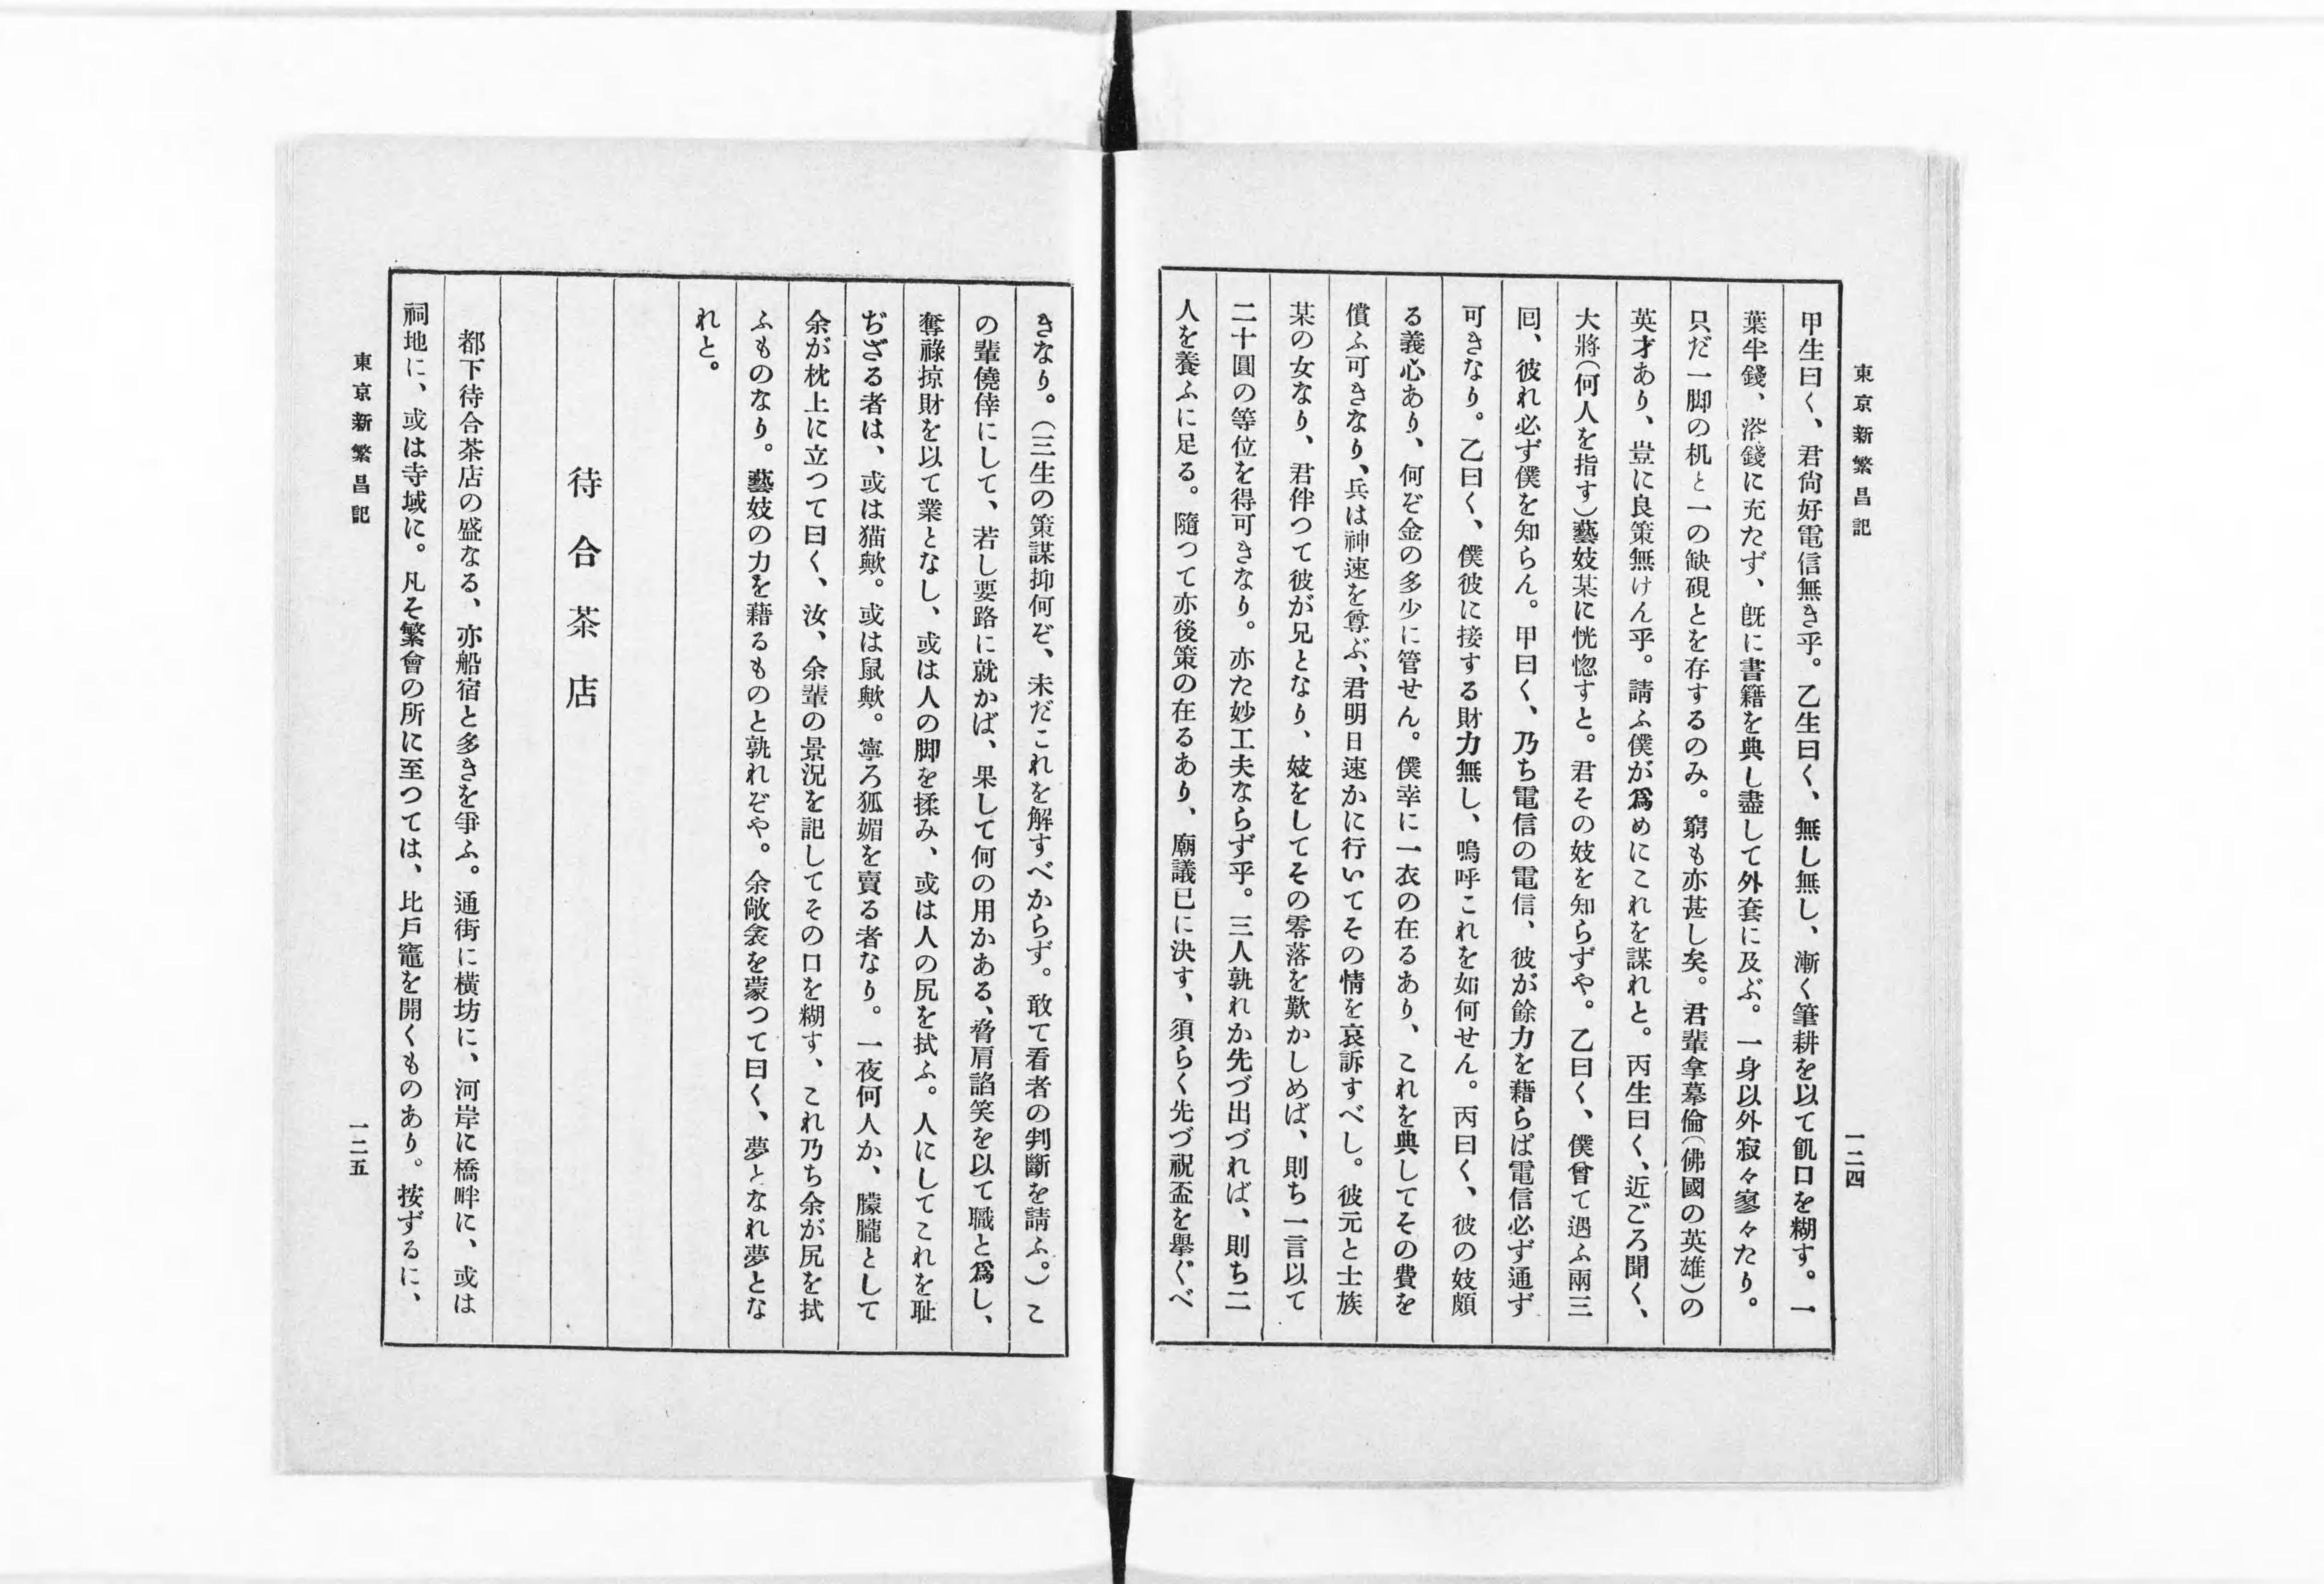 東京新繁昌記
一二四
甲生曰く、君尙好電信無き乎。乙生曰く、無し無し、漸く筆耕を以て飢口を糊す。一
葉半錢、浴錢に充たず、旣に書籍を典し盡して外套に及ぶ。一身以外寂々寥々たり。
只だ一脚の机と一の缺硯とを存するのみ。窮も亦甚し矣。君輩拿摹倫(佛國の英雄)の
英才あり、豈に良策無けん乎。請ふ僕が爲めにこれを謀れと。丙生曰く、近ごろ聞く、
大將(何人を指す)藝妓某に恍惚すと。君その妓を知らずや。乙曰く、僕曾て遇ふ兩三
囘、彼れ必ず僕を知らん。甲曰く、乃ち電信の電信、彼が餘力を藉らば電信必ず通ず
可きなり。乙曰く、僕彼に接する財力無し、嗚呼これを如何せん。丙曰く、彼の妓頗
る義心あり、何ぞ金の多少に管せん。僕幸に一衣の在るあり、これを典してその費を
償ふ可きなり、兵は神速を尊ぶ、君明日速かに行いてその情を哀訴すべし。彼元と士族
某の女なり、君伴つて彼が兄となり、妓をしてその零落を歎かしめば、則ち一言以て
二十圓の等位を得可きなり。亦た妙工夫ならず乎。三人孰れか先づ出づれば、則ち二
人を養ふに足る。隨つて亦後策の在るあり、廟議已に決す、須らく先づ祝盃を擧ぐべ
きなり。(三生の策謀抑何ぞ、未だこれを解すべからず。敢て看者の判斷を請ふ。)こ
の輩僥倖にして、若し要路に就かば、果して何の用かある、脅肩諂笑を以て職と爲し、
奪祿掠財を以て業となし、或は人の脚を揉み、或は人の尻を拭ふ。人にしてこれを耻
ぢざる者は、或は猫歟。或は鼠歟。寧ろ狐媚を賣る者なり。一夜何人か、朦朧として
余が枕上に立つて曰く、汝、余輩の景況を記してその口を糊す、これ乃ち余が尻を拭
ふものなり。藝妓の力を藉るものと孰れぞや。余敞衾を蒙つて曰く、夢となれ夢とな
れと。
待合茶店
都下待合茶店の盛なる、亦船宿と多きを爭ふ。通街に橫坊に、河岸に橋畔に、或は
祠地に、或は寺域に。凡そ繁會の所に至つては、比戶竈を開くものあり。按ずるに、
東京新繁昌記
一二五